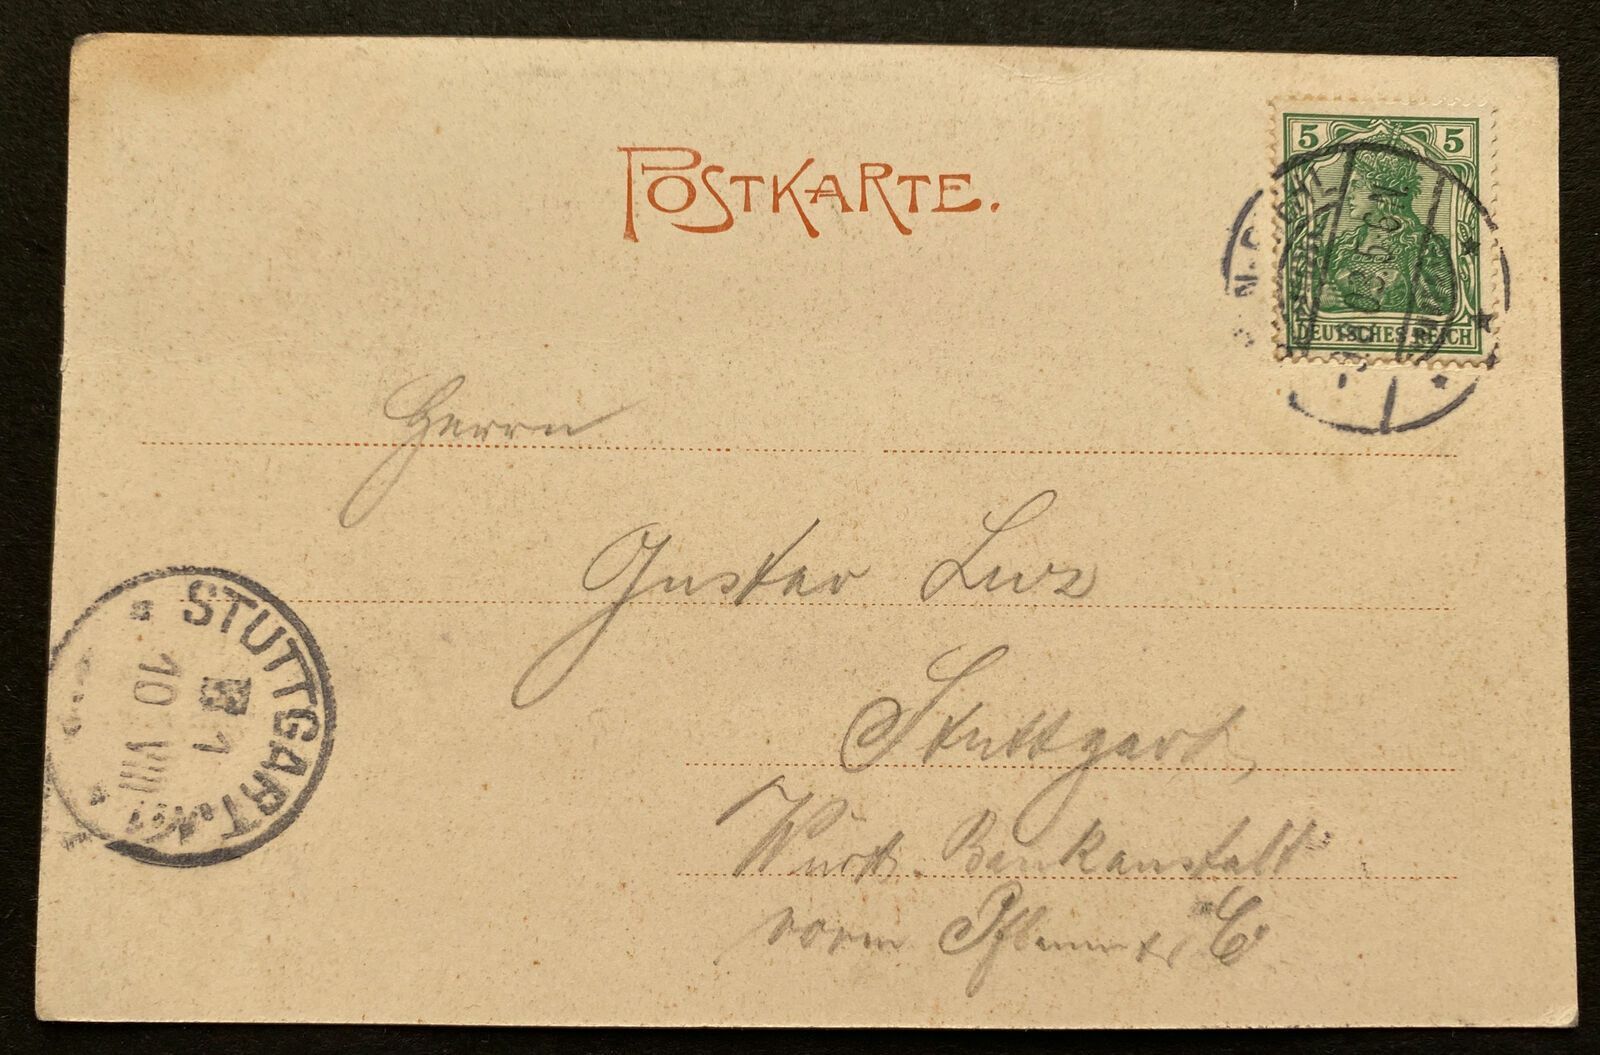 POSTKARTE.
5 5
DEUTSCHES REICH
Herrn
Gustav
Stuttgart,
Württ. Bankanstalt
vorm Pflaum & Co
STUTTGART. No. 1
1
10 VIII